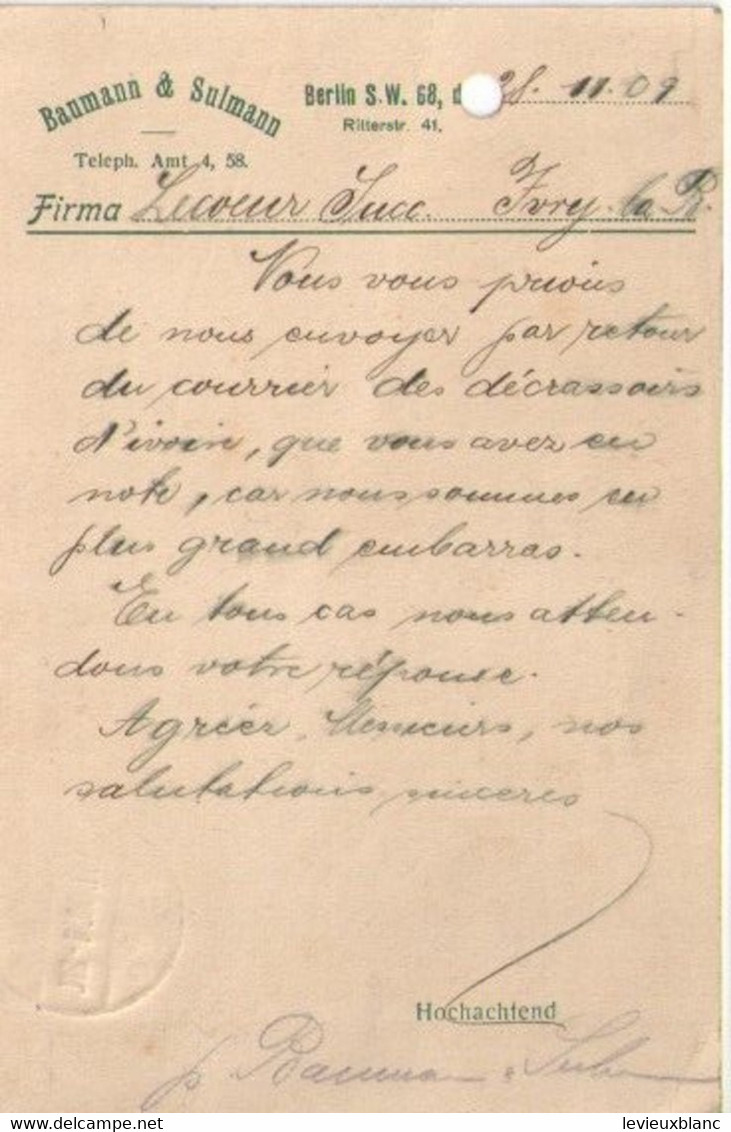 Baumann & Sulmann
Berlin S.W. 68, d 28. 11. 09
Ritterstr. 41.
Teleph. Amt 4, 58.
Firma Lecoeur Succ. Ivry-la R.
Nous vous prions
de nous envoyer par retour
du courrier des décrassoirs
d'ivoire, que vous avez en
note, car nous sommes en
plus grand embarras.
En tous cas nous atten-
dons votre réponse.
Agréer, Messieurs, nos
salutations sinceres
Hochachtend
p Baumann & Sulmann
www.delcampe.net
levieuxblanc